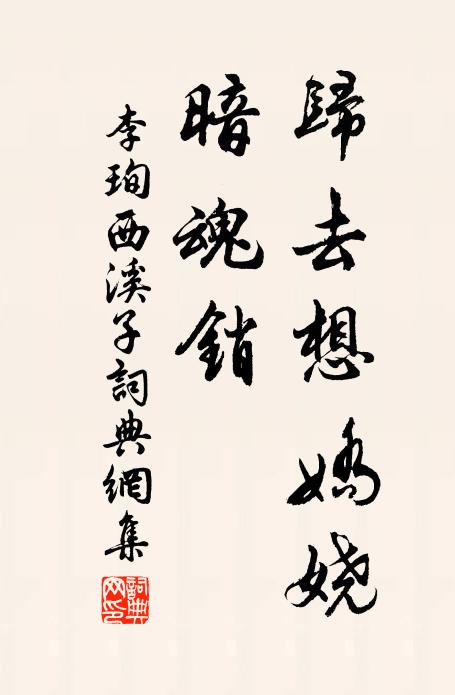 歸去想嬌娆
暗魂銷
李珣西溪子詞典網集
詞典网印